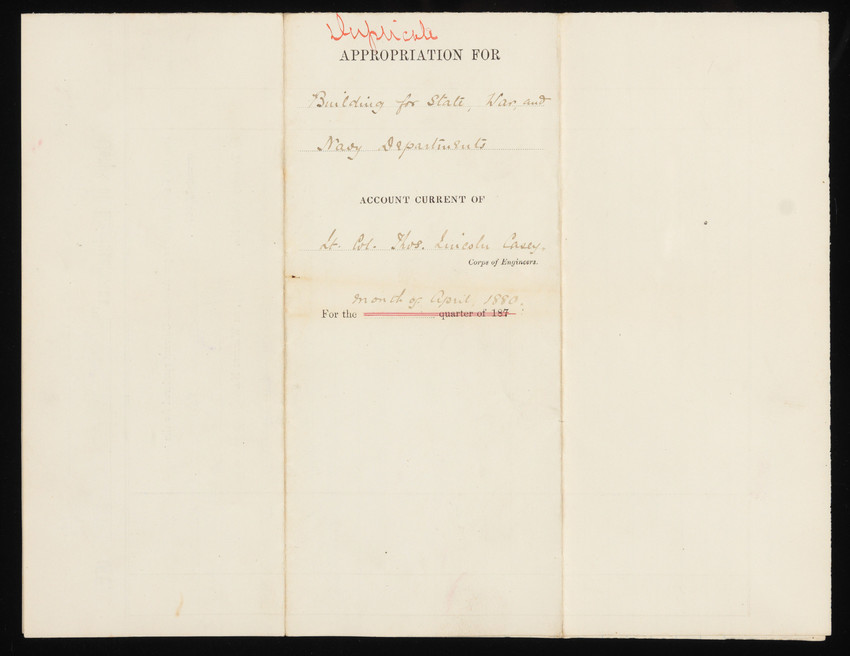 Duplicate
APPROPRIATION FOR
Building for State, War, and
Navy Departments
ACCOUNT CURRENT OF
Lt. Col. Thos. Lincoln Casey,
Corps of Engineers.
month of April, 1880.
For the quarter of 187 :